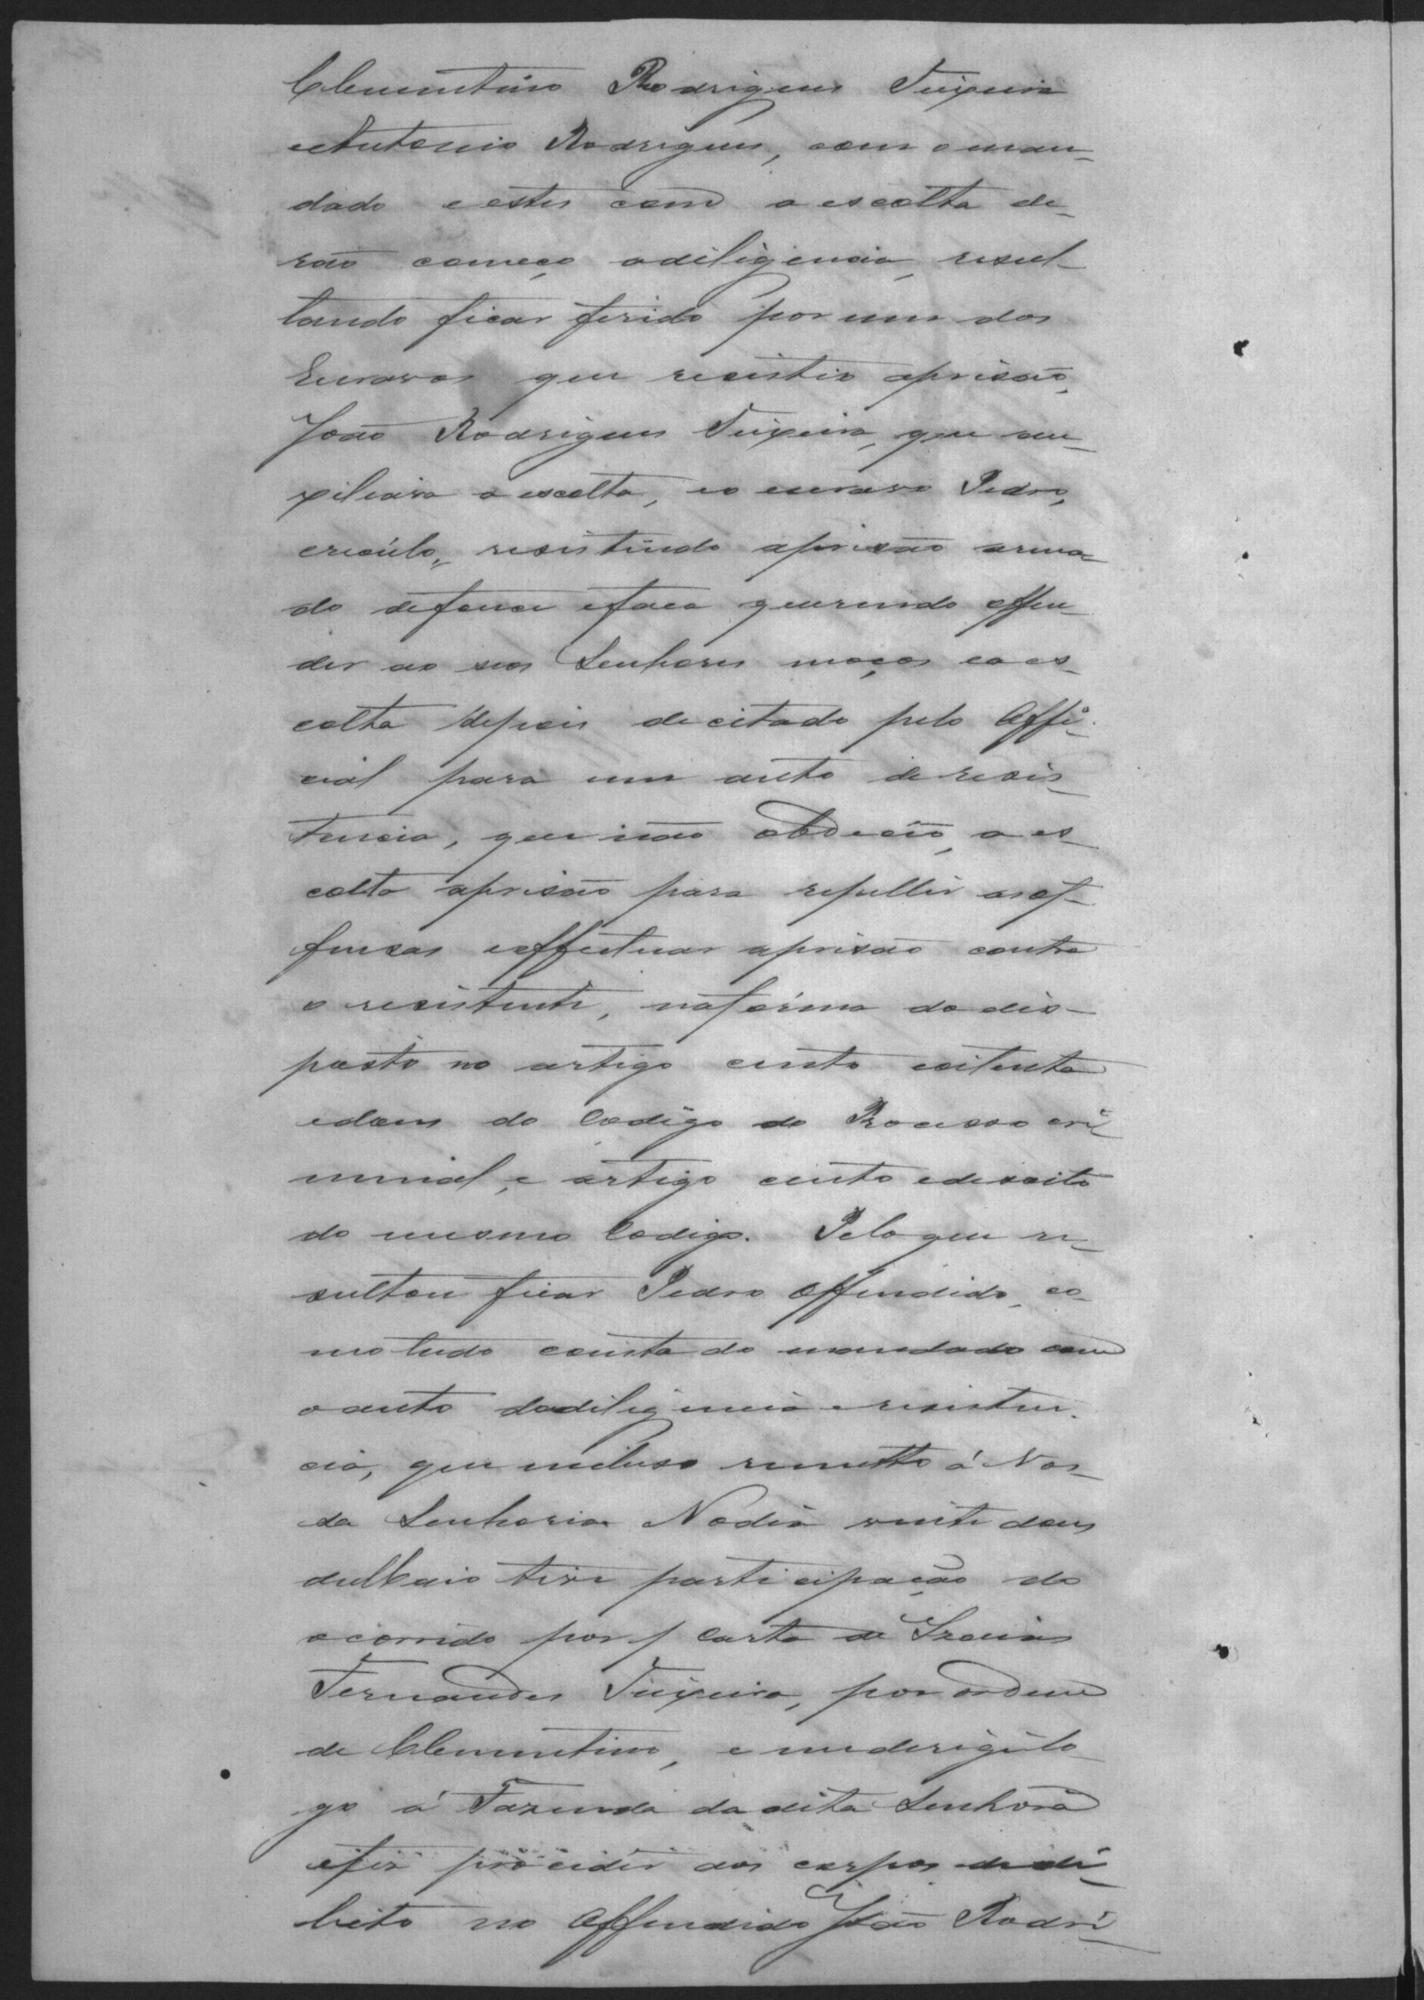 Clementino Rodrigues Teixeira
e Antonio Rodrigues, com o man-
dado e estes com a escolta de-
rão começo a diligencia, resul-
tando ficar ferido por um dos
Escravos que resistio a prisão,
João Rodrigues Teixeira, que au-
xiliava a escolta, e o escravo Pedro,
creoulo, resistindo a prisão arma-
do de fouce e faca querendo offen-
der ao seos Senhores moços e a es-
colta depois de citado pelo Offi-
cial para um auto de resis-
tencia, que não obdeceo, a es-
colta a prisão para repellir as of-
fensas e effectuar a prisão contra
o resistente, na forma do dis-
posto no artigo cento e oitenta
e dous do Codigo do Processo cri-
minal, e artigo cento e desoito
do mesmo Codigo. Pelo que re-
sultou ficar Pedro offendido, co-
mo tudo consta do mandado com
o auto da diligencia e resisten-
cia, que incluso remetto á Vos-
sa Senhoria No dia vinte dous
de Maio tive participação do
ocorrido por carta de Izaias
Fernandes Teixeira, por ordem
de Clementino, e me derigi lo-
go á Fazenda da dita Senhora
e fiz proceder aos corpos de de-
licto no offendido João Rodri-